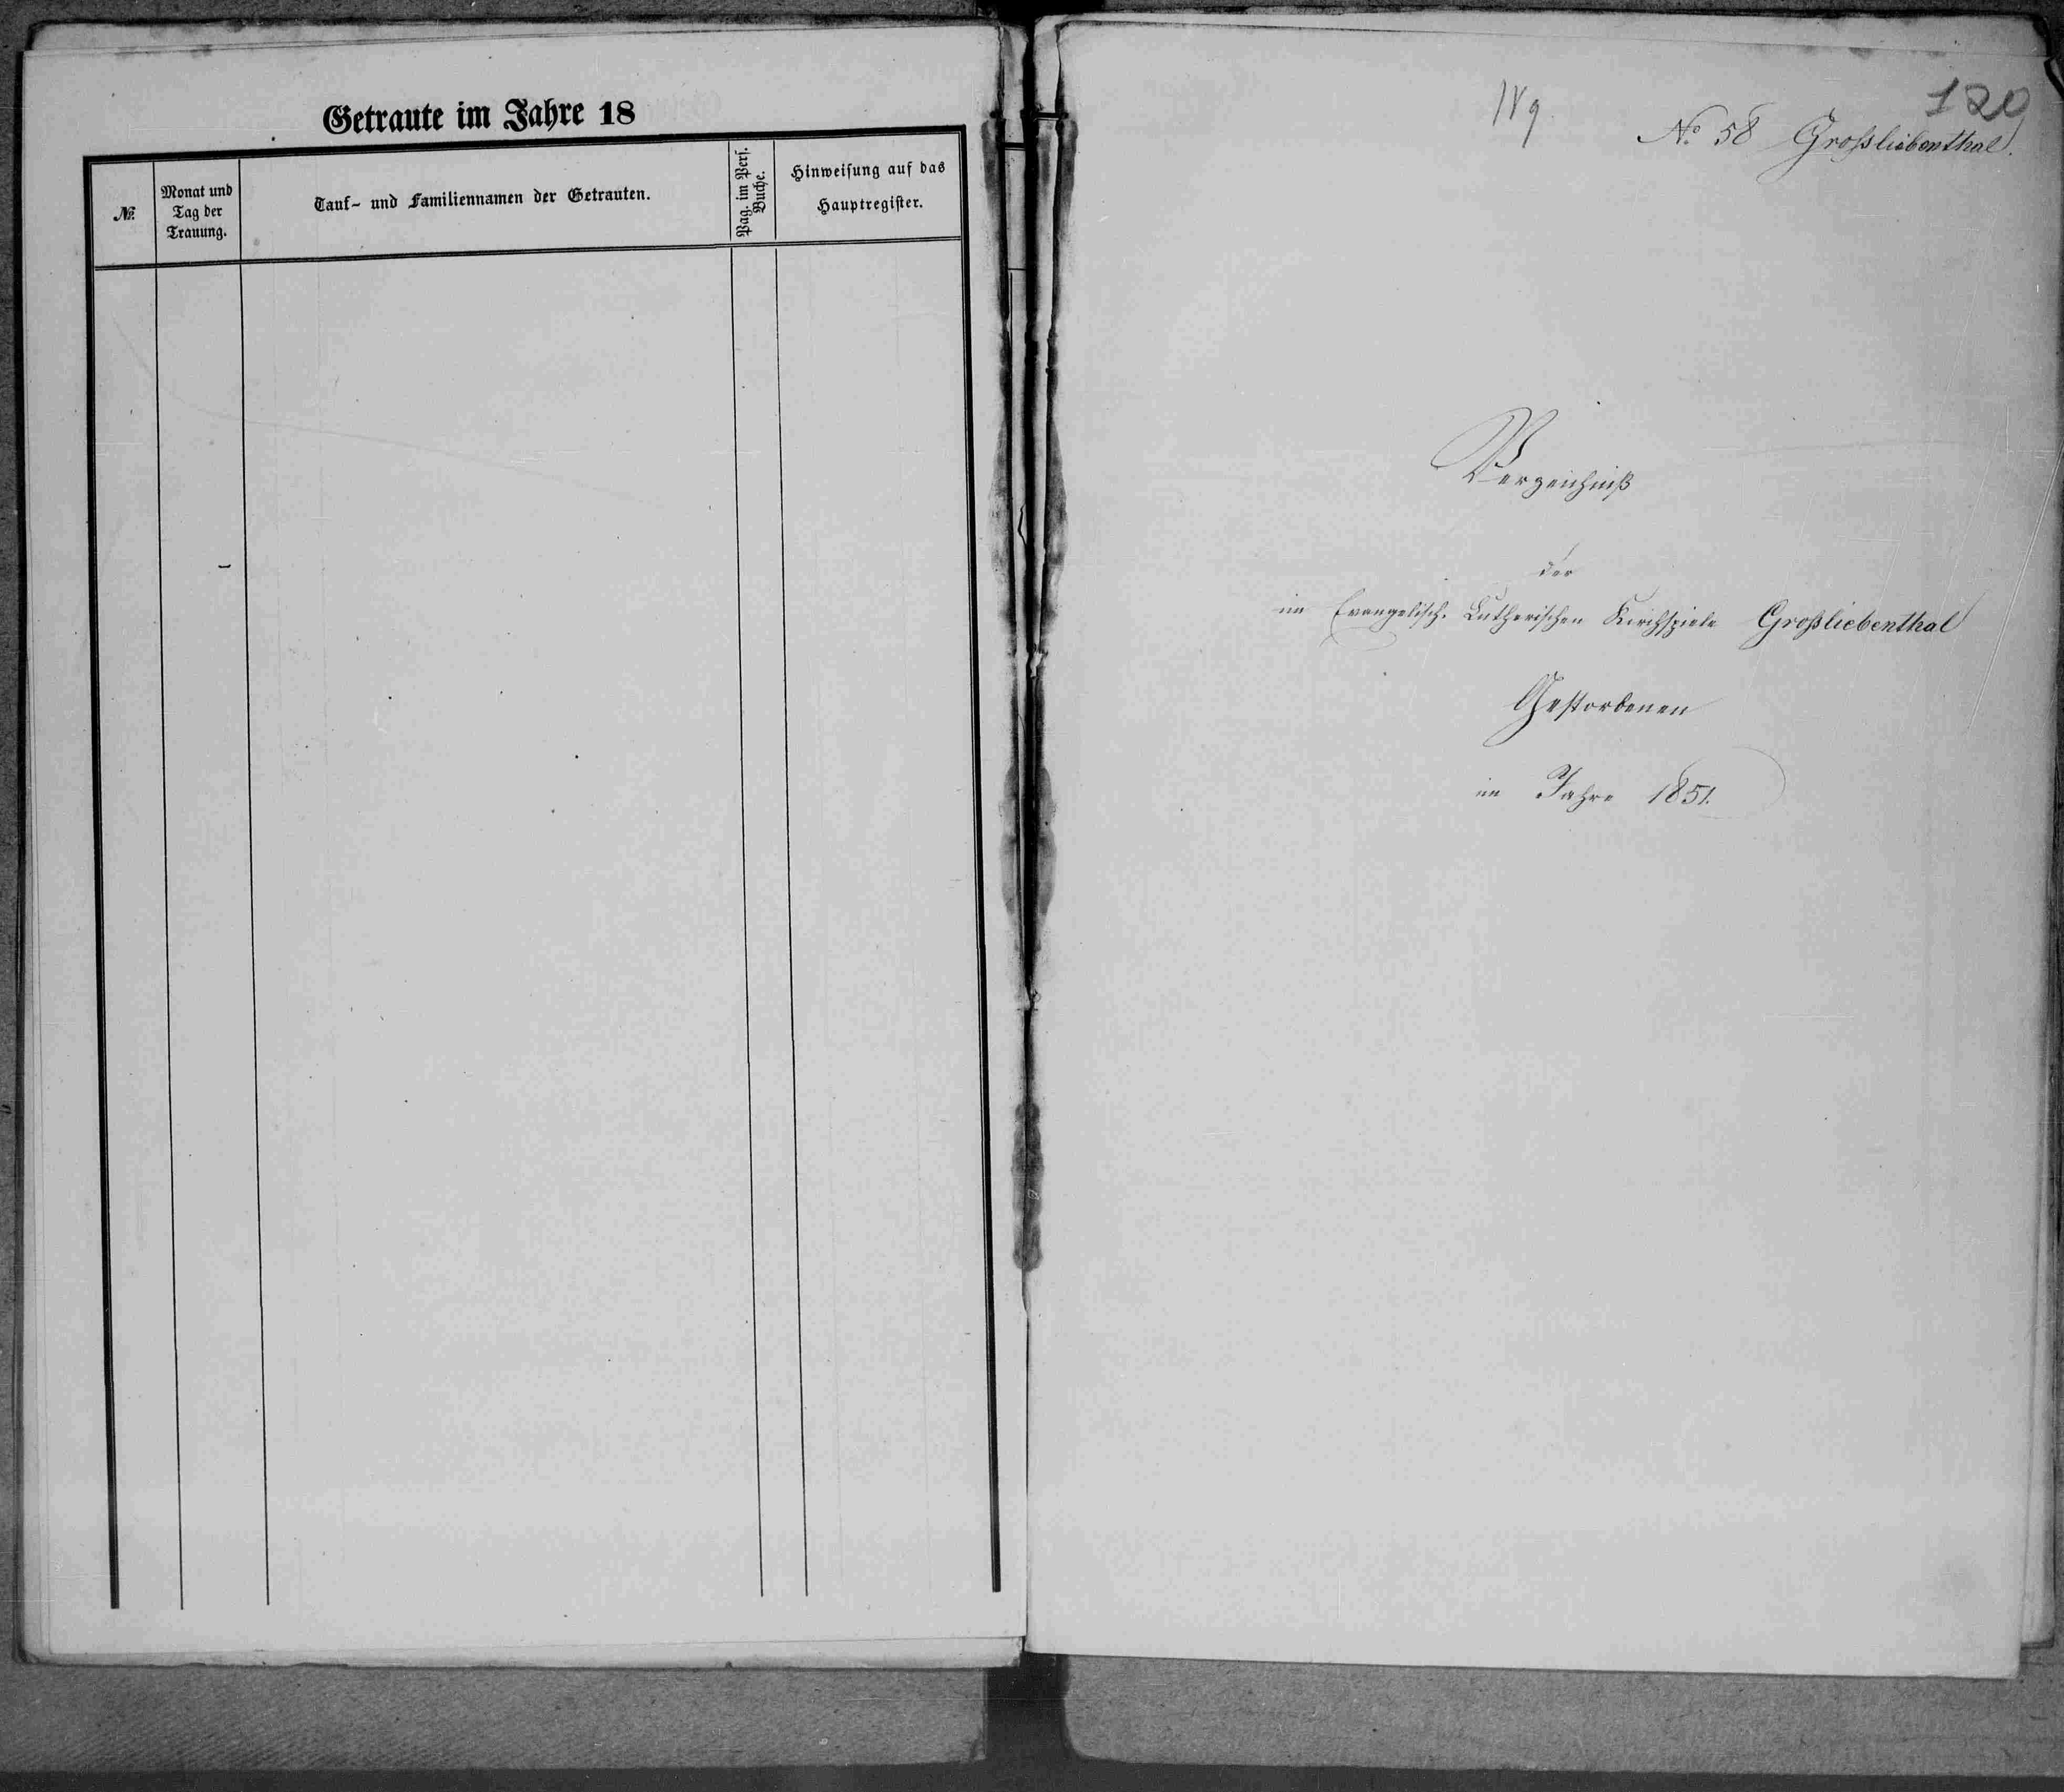 Getraute im Jahre 18
№
Monat und
Tag der
Trauung.
Tauf- und Familiennamen der Getrauten.
Pag. im Pers.
Buche.
Hinweisung auf das
Hauptregister.
120
No 58 Großliebenthal.
Verzeichniß
der
im Evangelisch. Lutherischen Kirchspiele Großliebenthal
Gestorbenen
im Jahre 1851.